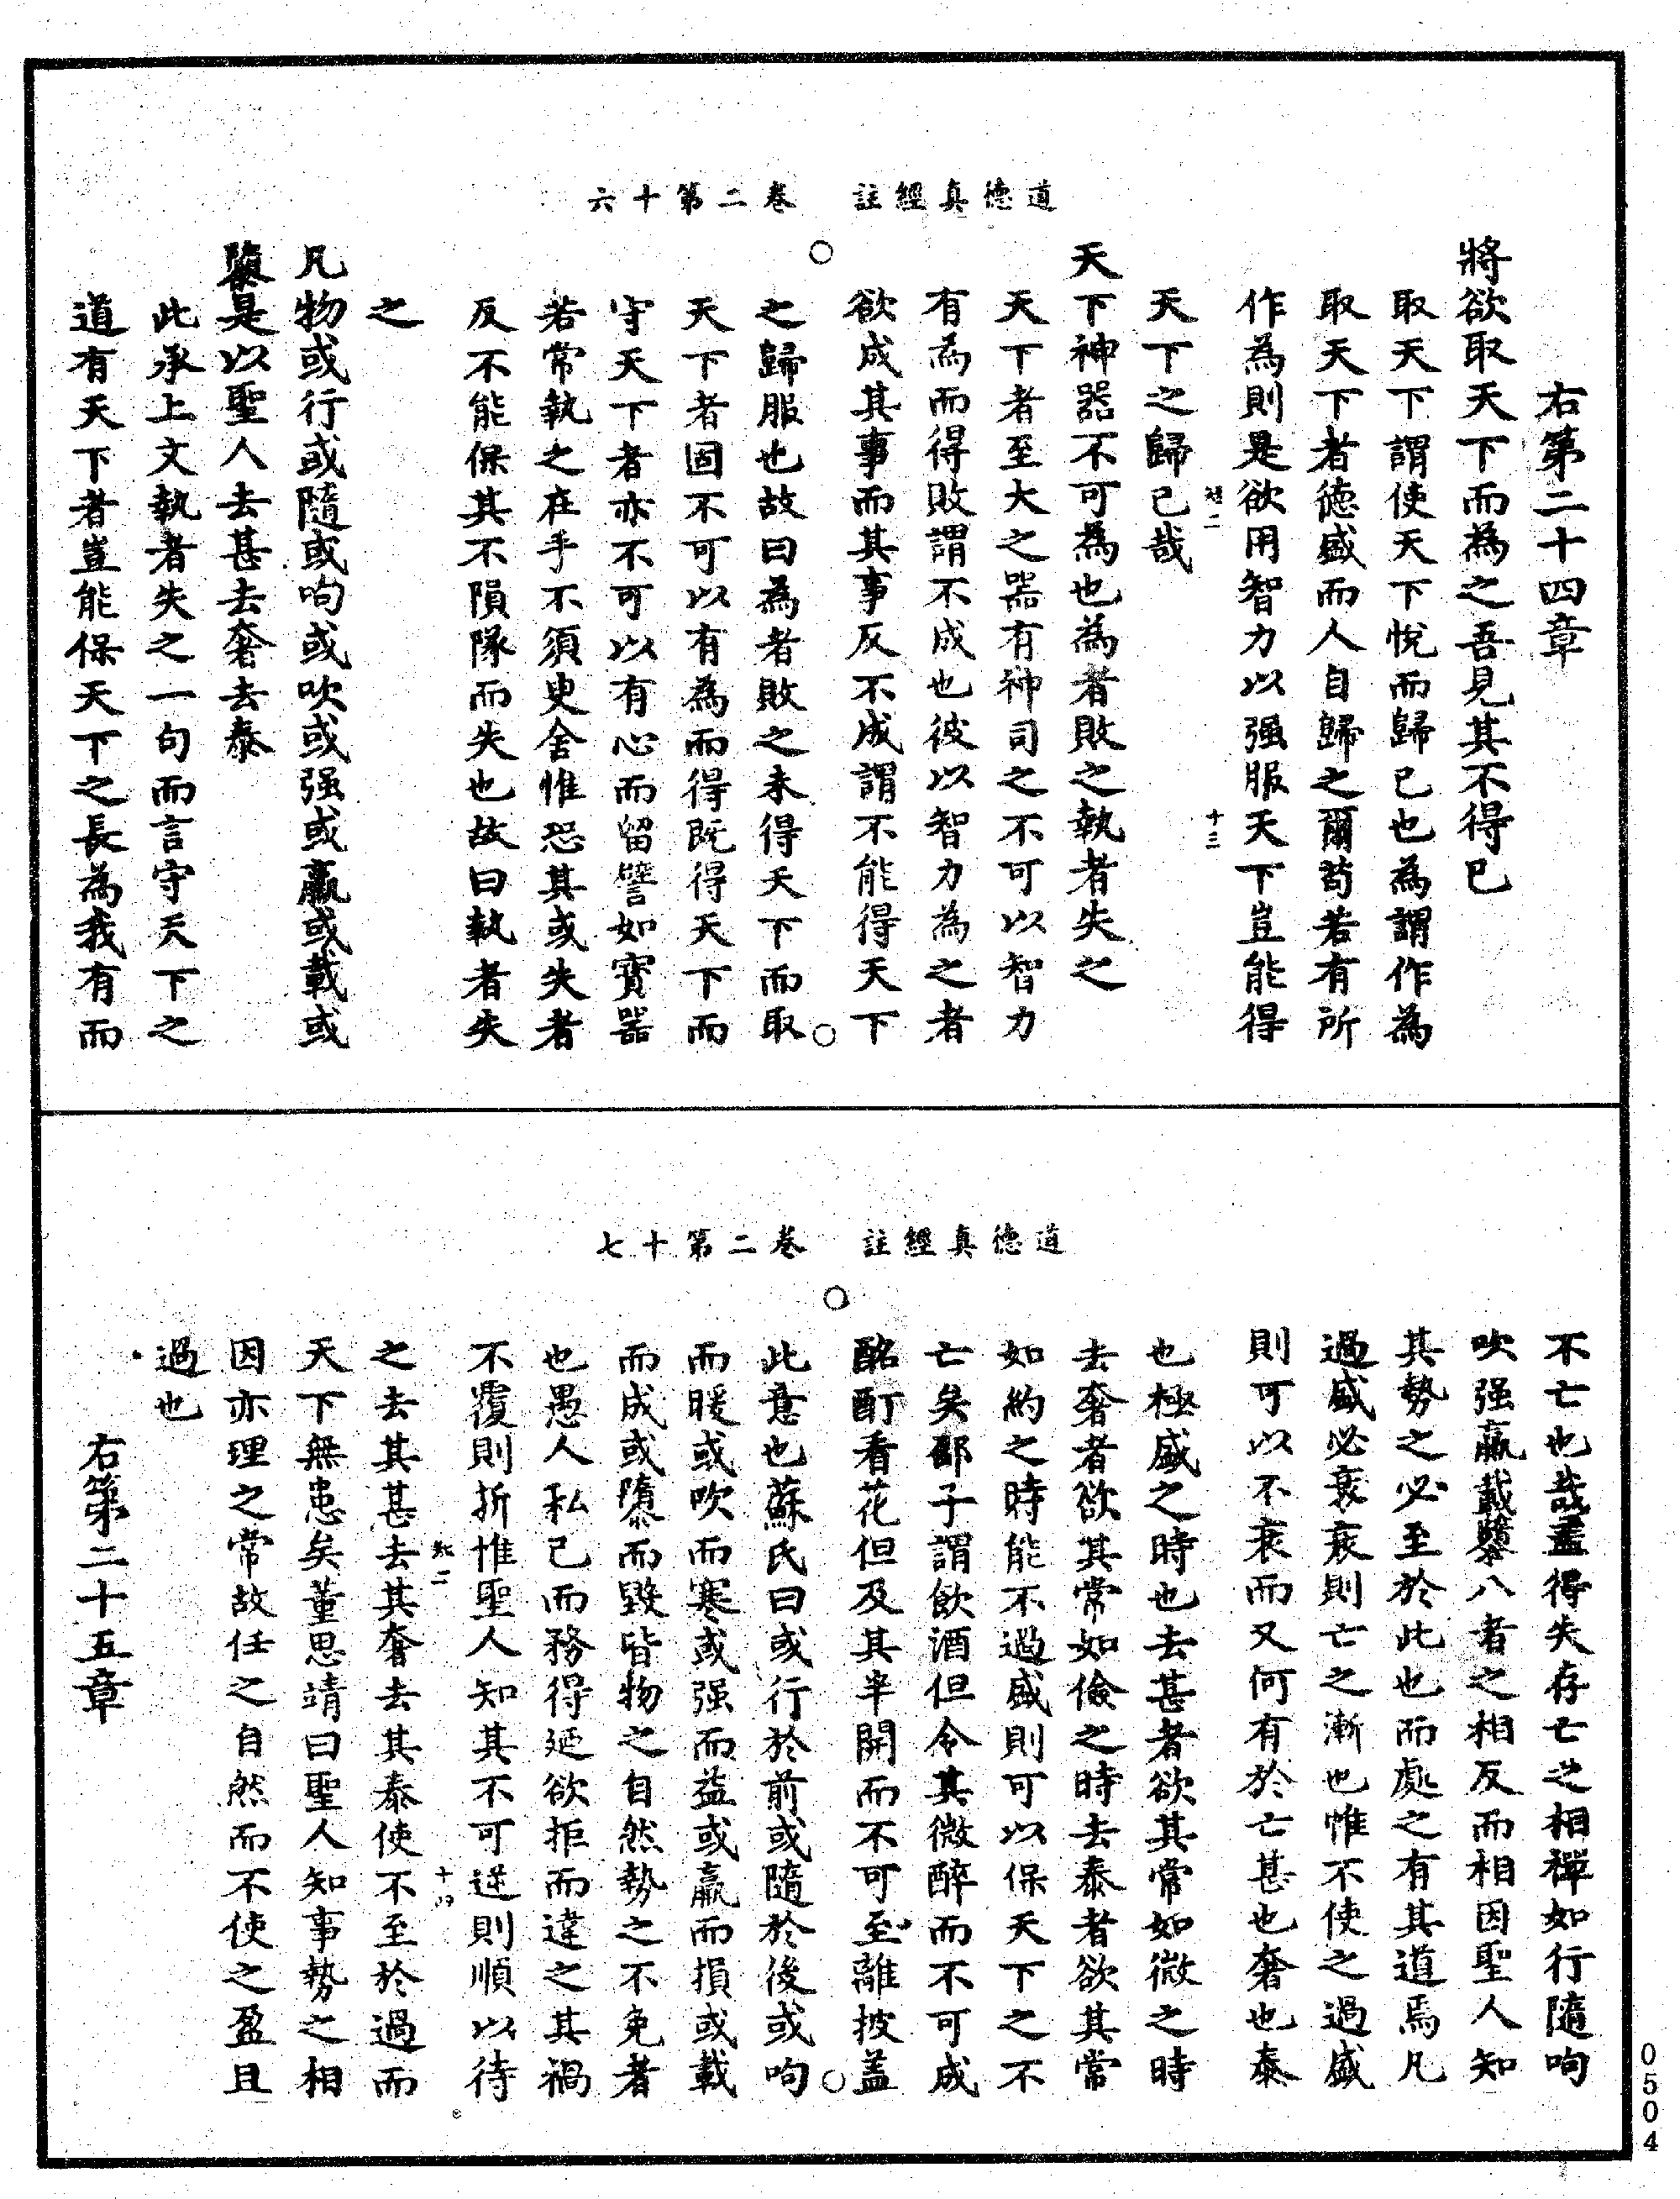 道德真經註　卷二第十六
右第二十四章
將欲取天下而為之吾見其不得已
取天下謂使天下悅而歸已也為謂作為
取天下者德盛而人自歸之爾苟若有所
作為則是欲用智力以强服天下豈能得
天下之歸已哉
天下神器不可為也為者敗之執者失之
天下者至大之器有神司之不可以智力
有為而得敗謂不成也彼以智力為之者
欲成其事而其事反不成謂不能得天下
之歸服也故曰為者敗之未得天下而取
天下者固不可以有為而得既得天下而
守天下者亦不可以有心而留譬如寶器
若常執之在手不須臾舍惟恐其或失者
反不能保其不隕隊而失也故曰執者失
之
凡物或行或隨或呴或吹或强或羸或載或
隳是以聖人去甚去奢去泰
此承上文執者失之一句而言守天下之
道有天下者豈能保天下之長為我有而
道德真經註　卷二第十七
不亡也哉蓋得失存亡之相禪如行隨呴
吹强羸載隳八者之相反而相因聖人知
其勢之必至於此也而處之有其道焉凡
過盛必衰衰則亡之漸也惟不使之過盛
則可以不衰而又何有於亡甚也奢也泰
也極盛之時也去甚者欲其常如微之時
去奢者欲其常如儉之時去泰者欲其常
如約之時能不過盛則可以保天下之不
亡矣邵子謂飲酒但令其微醉而不可成
酩酊看花但及其半開而不可至離披蓋
此意也蘇氏曰或行於前或隨於後或呴
而暖或吹而寒或强而益或羸而損或載
而成或隳而毀皆物之自然勢之不免者
也愚人私己而務得廼欲拒而違之其禍
不覆則折惟聖人知其不可逆則順以待
之去其甚去其奢去其泰使不至於過而
天下無患矣董思靖曰聖人知事勢之相
因亦理之常故任之自然而不使之盈且
過也
右第二十五章
0504